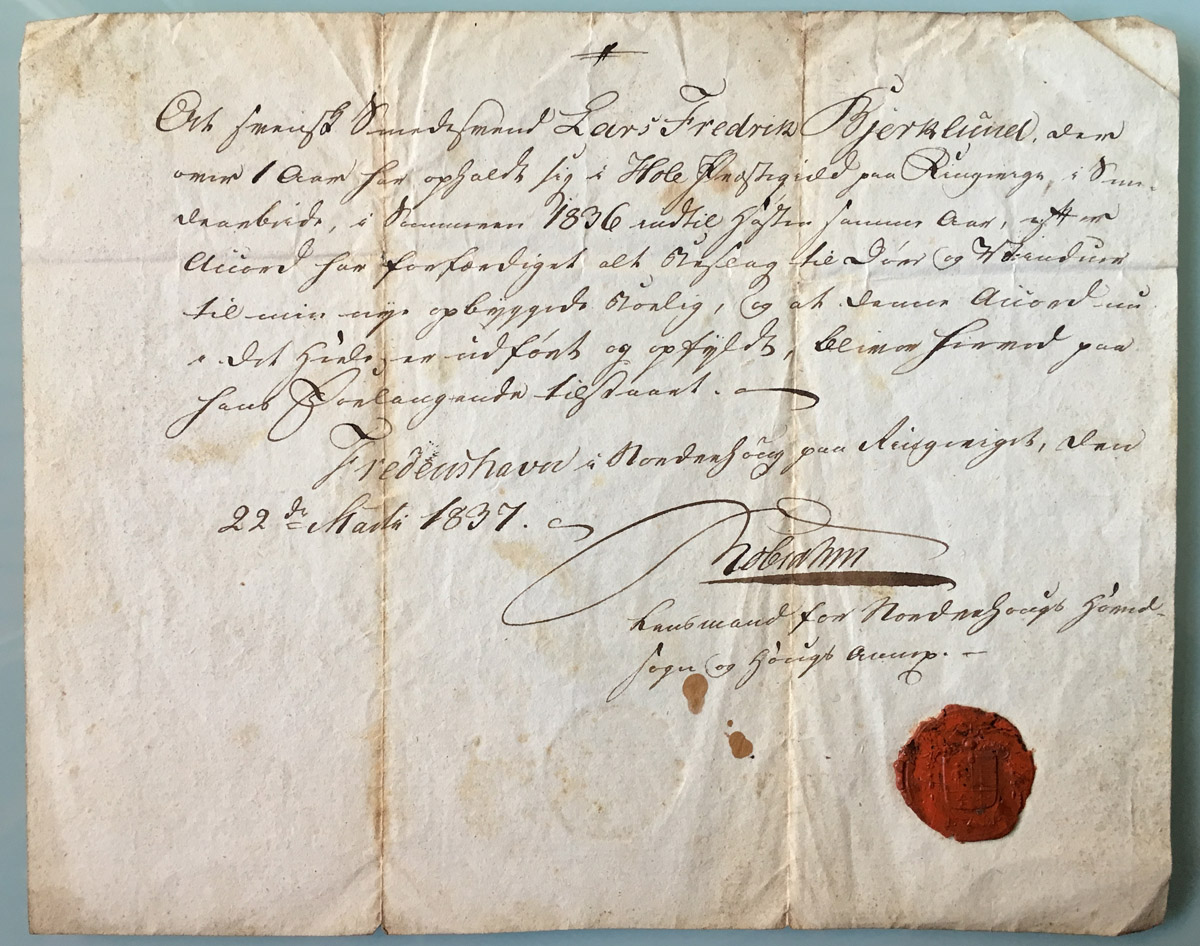 At svensk Smedesvend Lars Fredrik Bjerklund, der
over 1 Aar har opholdt sig i Hole Præstigield paa Ringerige, i Sme-
dearbeide, i Sommeren 1836 indtil Høsten samme Aar, efter
Accord har forfærdiget alt Beslag til Døre og Vinduer
til min nye opbyggede Boelig, og at denne Accord nu
i det Hiele er udført og opfyldt, bliver herved paa
hans Forlangende tilstaaet.
Fredenshavn i Norderhoug paa Ringeriget, den
22de Martii 1837.
Lensmand for Norderhougs Hoved-
sogn og Hougs Annex.